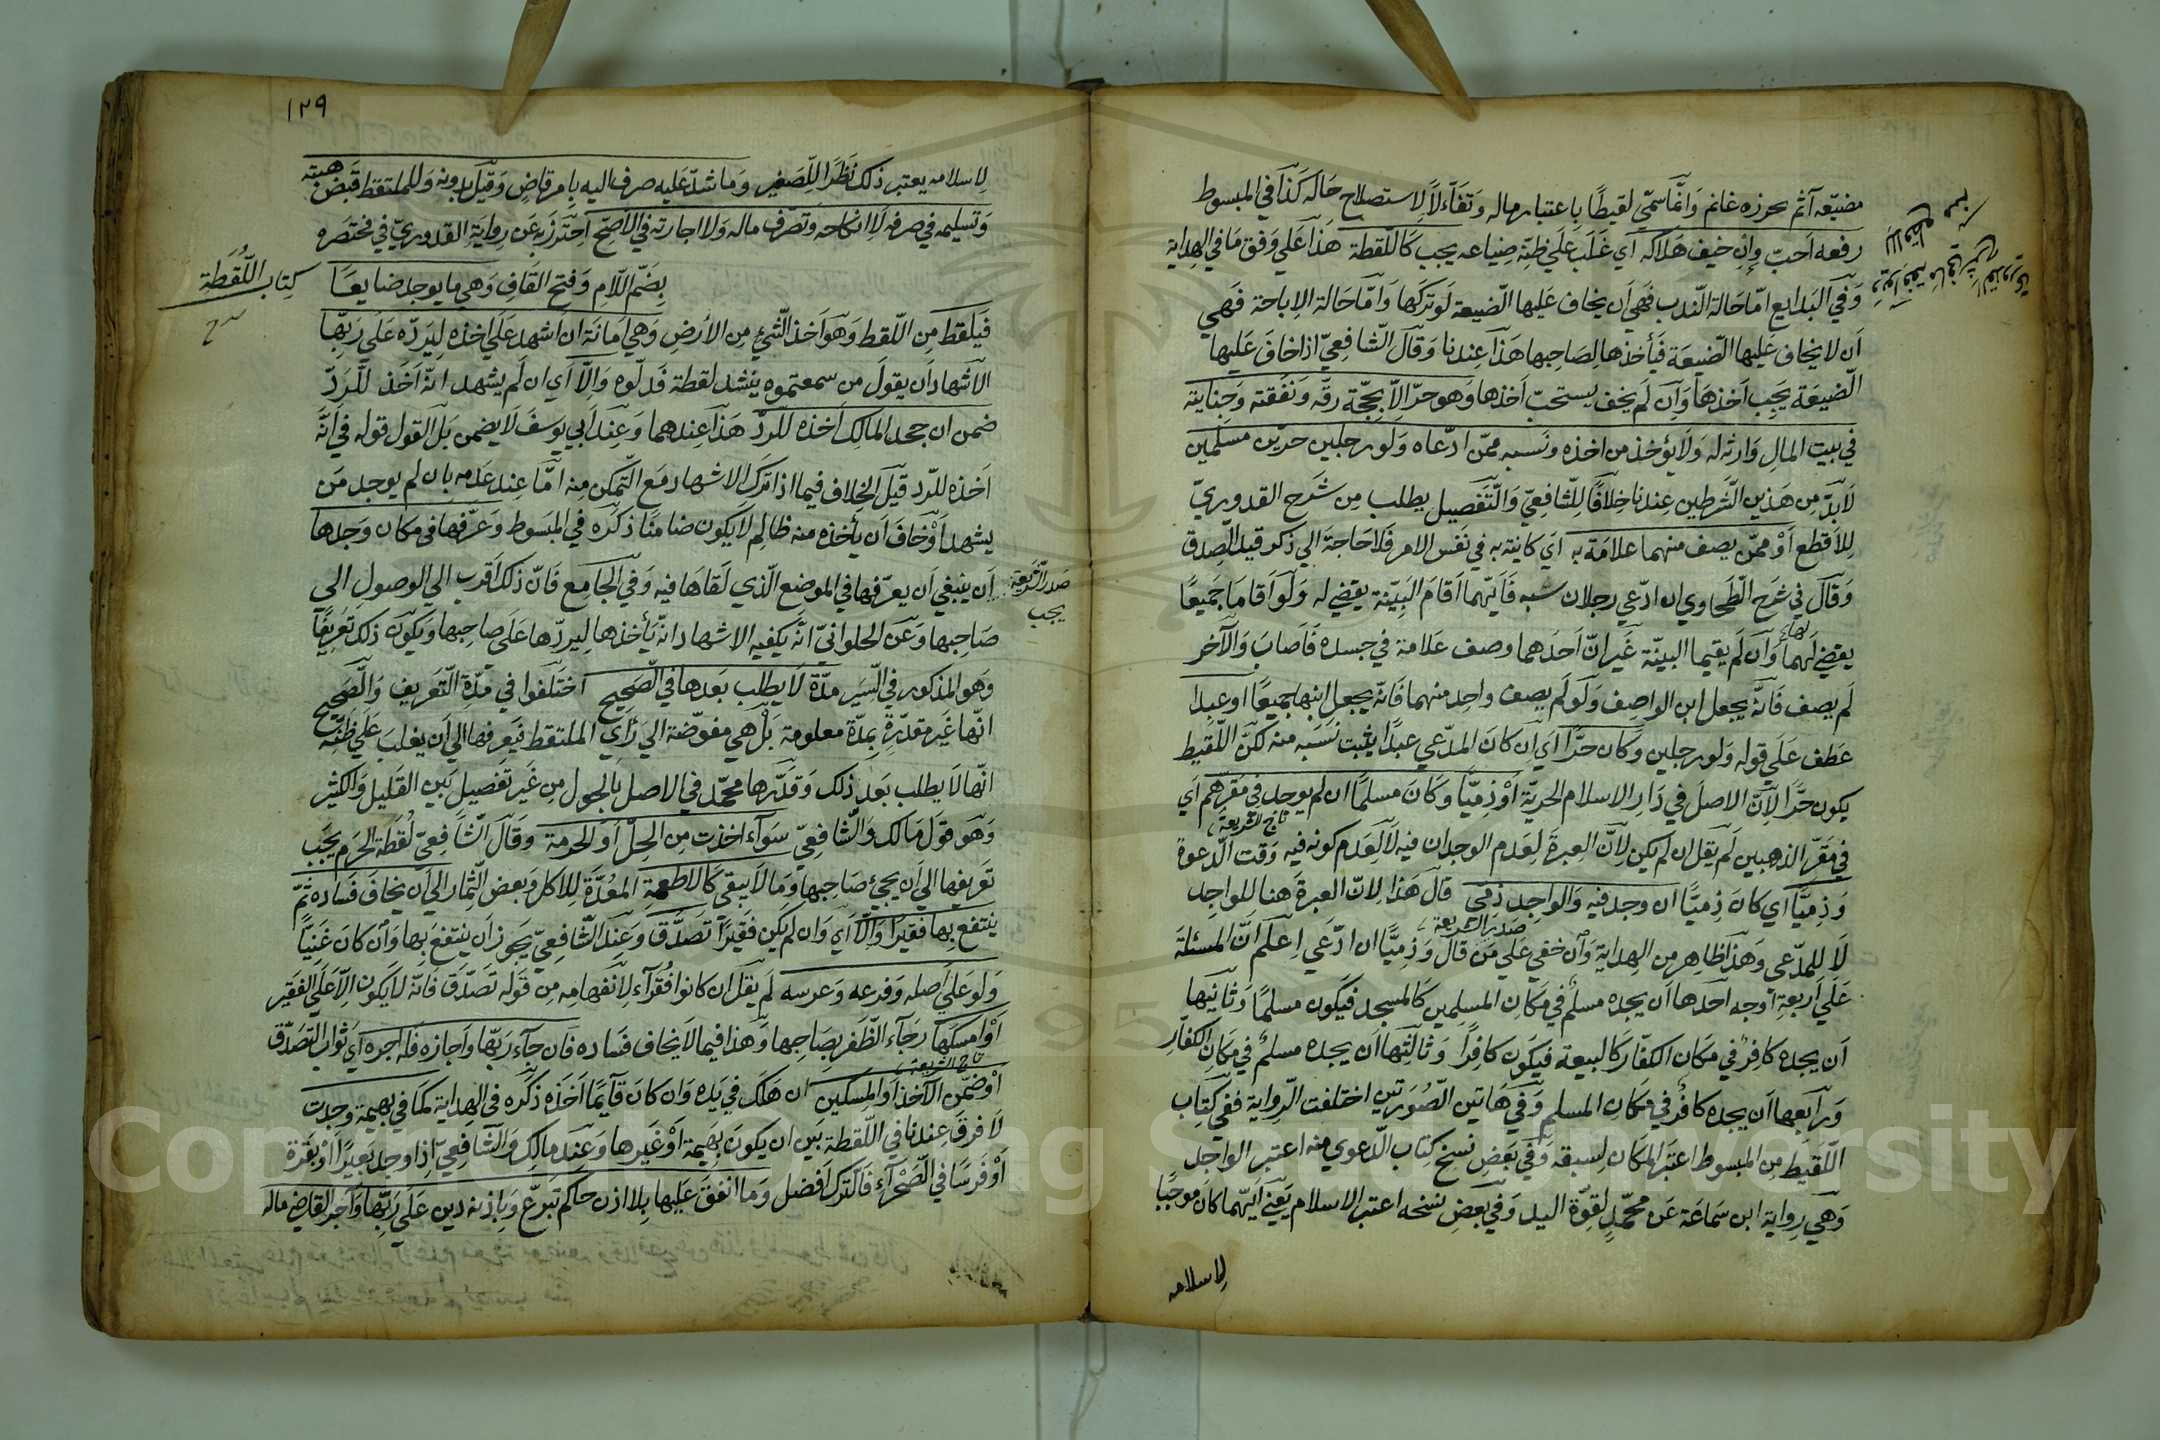 مضيّعه آثم محرزه غانم وَانّما سمّي لقيطًا بِاعتبار ماله وَتَفَآءلًا لِاستصلاح حَاله كَذا في المبسوط
رفعه اَحبّ وان خيف هَلاكه آي غَلَب عَلي ظنّه ضياعه يجب كَاللّقطة هَذا عَلي وَفق مَا في الهِداية
وَفي البَدايع امّا حَالة النّدب فَهي اَن يخاف عَليها الضّيعة لَو تركها وَامّا حَالة الاِباحة فَهي
اَن لا يخاف عَليها الضّيعَة فَيأخذها لِصَاحِبها هَذا عِندنا وَقال الشّافِعيّ اذا خافَ عَليها
الضّيعَة يجِب اَخذهَا وَان لَم يخف يستحبّ اَخذها وَهو حرّ الّا بِحجّة رقّه وَنفَقته وَجِنايته
في بيت المالِ وَارثه له وَلا يؤخذ من اخذه ونَسبه ممّن ادّعاه وَلو رجلين حرّين مسلمين
لَا بدّ مِن هَذين الشّرطين عِندنا خِلافًا لِلشّافِعيّ وَالتّفصيل يطلب مِن شَرح القدوريّ
لِلاَقطع اَوْ ممّن يصف منهما علامَة به اَي كائنة به في نَفس الامر فَلا حَاجَة الي ذكر قيد الصّدق
وَقال في شَرح الطّحاوي ان ادّعي رجلان نسبه فَاَيّهما اَقامَ البَيّنة يقضي له وَلَو اَقاما جَميعًا
يقضي لَهما وَان لَم يقيما البيّنة غَير انّ اَحدَهما وصف عَلامة في جسده فَاَصابَ وَالآخر
لَم يصف فَانّه يجعل ابن الواصِف وَلَو لَم يصف واحِد منهما فَانّه يجعل ابنهما جميعًا او عبدا
عَطف عَلي قوله وَلو رجلين وَكان حرّا اَي ان كانَ المدّعي عبدًا يثبت نَسَبه منه لكنّ اللّقيط
يكون حرّا لِاَنّ الاصلَ في دَارِ الاسلام الحريّة اَوْ ذِميّا وَكانَ مسلمًا ان لم يوجد في مَقرّهم اَي
في مَقرّ الذميين لَم يَقل ان لم يكن لِاَنّ العِبرة لِعَدم الوجدان فيه لَا لِعَدم كونه فيه وَقت الدّعوة
تاج الشّريعة
وَذِميّا اَي كانَ ذِميّا ان وجد فيه وَالواجِد ذمّي قالَ هَذا لِانّ العبرة هَنا للواجِد
لَا للمدّعي وَهذا ظَاهِر مِن الهِداية وَان خفي عَلي مَن قالَ وَذِميًّا ان ادّعي اِعلَم اَنّ المسئلة
صدر الشّريعة
عَلَي اَربعةِ اَوجه اَحَدها اَن يجده مسلمٌ في مَكان المسلِمين كَالمسجد فَيكون مسلمًا وَثانيها
اَن يجده كافِرٌ في مَكان الكفّار كَالبيعة فيَكون كافِرًا وَثالثها اَن يجده مسلمٌ في مَكانِ الكفّارِ
وَرَابعها اَن يجده كافرٌ في مَكان المسلم وَفي هَاتَين الصّورَتين اختلفت الرّواية فَفي كِتَاب
اللّقيطِ مِن المبسوط اعتبَر المَكان لِسبقه وَفي بَعض نسخ كِتاب الدّعوي منه اعتبر الواجد
وَهي رواية ابن سَماعَة عَن محمّد لقوّة اليد وَفي بعضِ نسخه اعتبر الاسلام يَعني اَيّهما كانَ موجبًا
لاسلامه
للاقطع منه
١٢٩
لاِسلامه يعتبر ذلك نَظَرا لِلصّغير وَما شدّ عَليه صرف اليه بِامر قاضٍ وَقيل بِدونه وَللملتقط قبض هبته
وَتسليمه في حرفة لَا انكاحه وَتصرّف ماله وَلا اجارته في الاصحّ احترز به عَن رواية القدوريّ في مختصره
كِتاب اللُّقَطَة
بِضَمّ اللّامِ وَفتح القَافِ وَهي ما يوجد ضايعًا
فَيلقط مِن اللّقط وَهو اَخذ الشّيء مِن الأرضِ وَهي اَمانَة ان اشهد عَلَي اخذه لِيَردّه عَلَي رَبّها
الاشهاد اَن يقولَ من سمعتموه ينشد لقطة فَدلّوه وَالّا اَي ان لَم يشهد انّه اَخَذ للرَدّ
ضمن ان جحد المالِك اَخذه للرّدّ هَذا عِندهما وَعِندَ اَبي يوسفَ لا يضمن بَل القول قوله في اَنّه
اَخَذه للرّد قيلَ الخِلاف فيما اذا تركَ الاشهاد مَع التّمكن مِنه امّا عِند عَدمه بان لم يوجد مَن
يشهد اَوْ خافَ اَن يأخذه منه ظالِم لا يَكون ضامنًا ذكَره في المبسوط وَعرّفها في مكان وَجدها
اَن ينبغي اَن يعرّفها في الموضع الّذي لَقاهَا فيه وَفي الجَامع فَانّ ذلك اَقرَب الي الوصول الي
صدر الشّريعة
يجب
صَاحِبها وَعَن الحلوانيّ انّه يكفيه الاشهاد انّه يَأخذها ليردّها عَلَي صاحِبها وَيَكون ذلك تَعريفًا
وَهو المذكور في السِّيَر مدّة لَا يطلب بَعدها في الصّحيح اختَلفوا في مدّة التّعريف وَالصّحيح
انّها غَير مقدّرةٍ بمدّة معلومة بَل هي مفوّضة الي رَأي الملتقط فيعرفها الي اَن يغلبَ عَلي ظَنّه
انّها لا يطلب بَعد ذلك وَقدّرها محمّد في الاصل بالحول مِن غَير تفصيل بَين القَليل وَالكثير
وَهو قول مَالك وَالشّافعيّ سوآء اخذت مِن الحِلّ اَو الحرمة وَقالَ الشّافِعيّ لُقطَة الحَرم يجب
تَعريفها الي اَن يجيء صَاحِبها وَما لَا يَبقي كَالاطعمة المُعَدّة لِلاكل وَبعض الثّمار الي اَن يخافَ فَساده ثمّ
ينتفع بِها فَقيرًا وَالّا اَي وَان لم يَكن فَقيرًا تصَدّقَ وَعِندَ الشّافِعيّ يَجوز اَن ينتفعَ بها وَان كانَ غَنيًّا
وَلو عَلي اَصله وَفرعه وَعرسه لَم يقل ان كانوا فُقَرآء لِانفهامه مِن قَوله تَصدّق فَانّه لا يَكون الّا عَلَي الفقير
اَوْ امسكَها رَجآءَ الظّفر بِصَاحِبها وَهذا فيما لا يخاف فَساده فَان جآء رَبّها وَاَجازه فَله اَجره اَي ثَواب التّصدّق
اَوْ ضمّن الآخذ اَو المسكين ان هَلك في يَده وَان كانَ قآيمًا اَخَذه ذكره في الهِداية كمَا في بهيمة وجدت
تاج الشّريعة
لَا فرقَ عِندنا في اللّقطة بَين ان يكونَ بَهيمة اَوْ غَيرها وَعِندَ مالِك وَالشّافِعيّ اذا وجد بَعيرًا اَوْ بَقرة
اَوْ فَرسًا في الصّحرآءِ فَالترك اَفضل وَما انفقَ عَليها بِلا اذن حاكم تبرّع وَبِاذنه دين عَلَي رَبّها وَآجر القاضي ماله